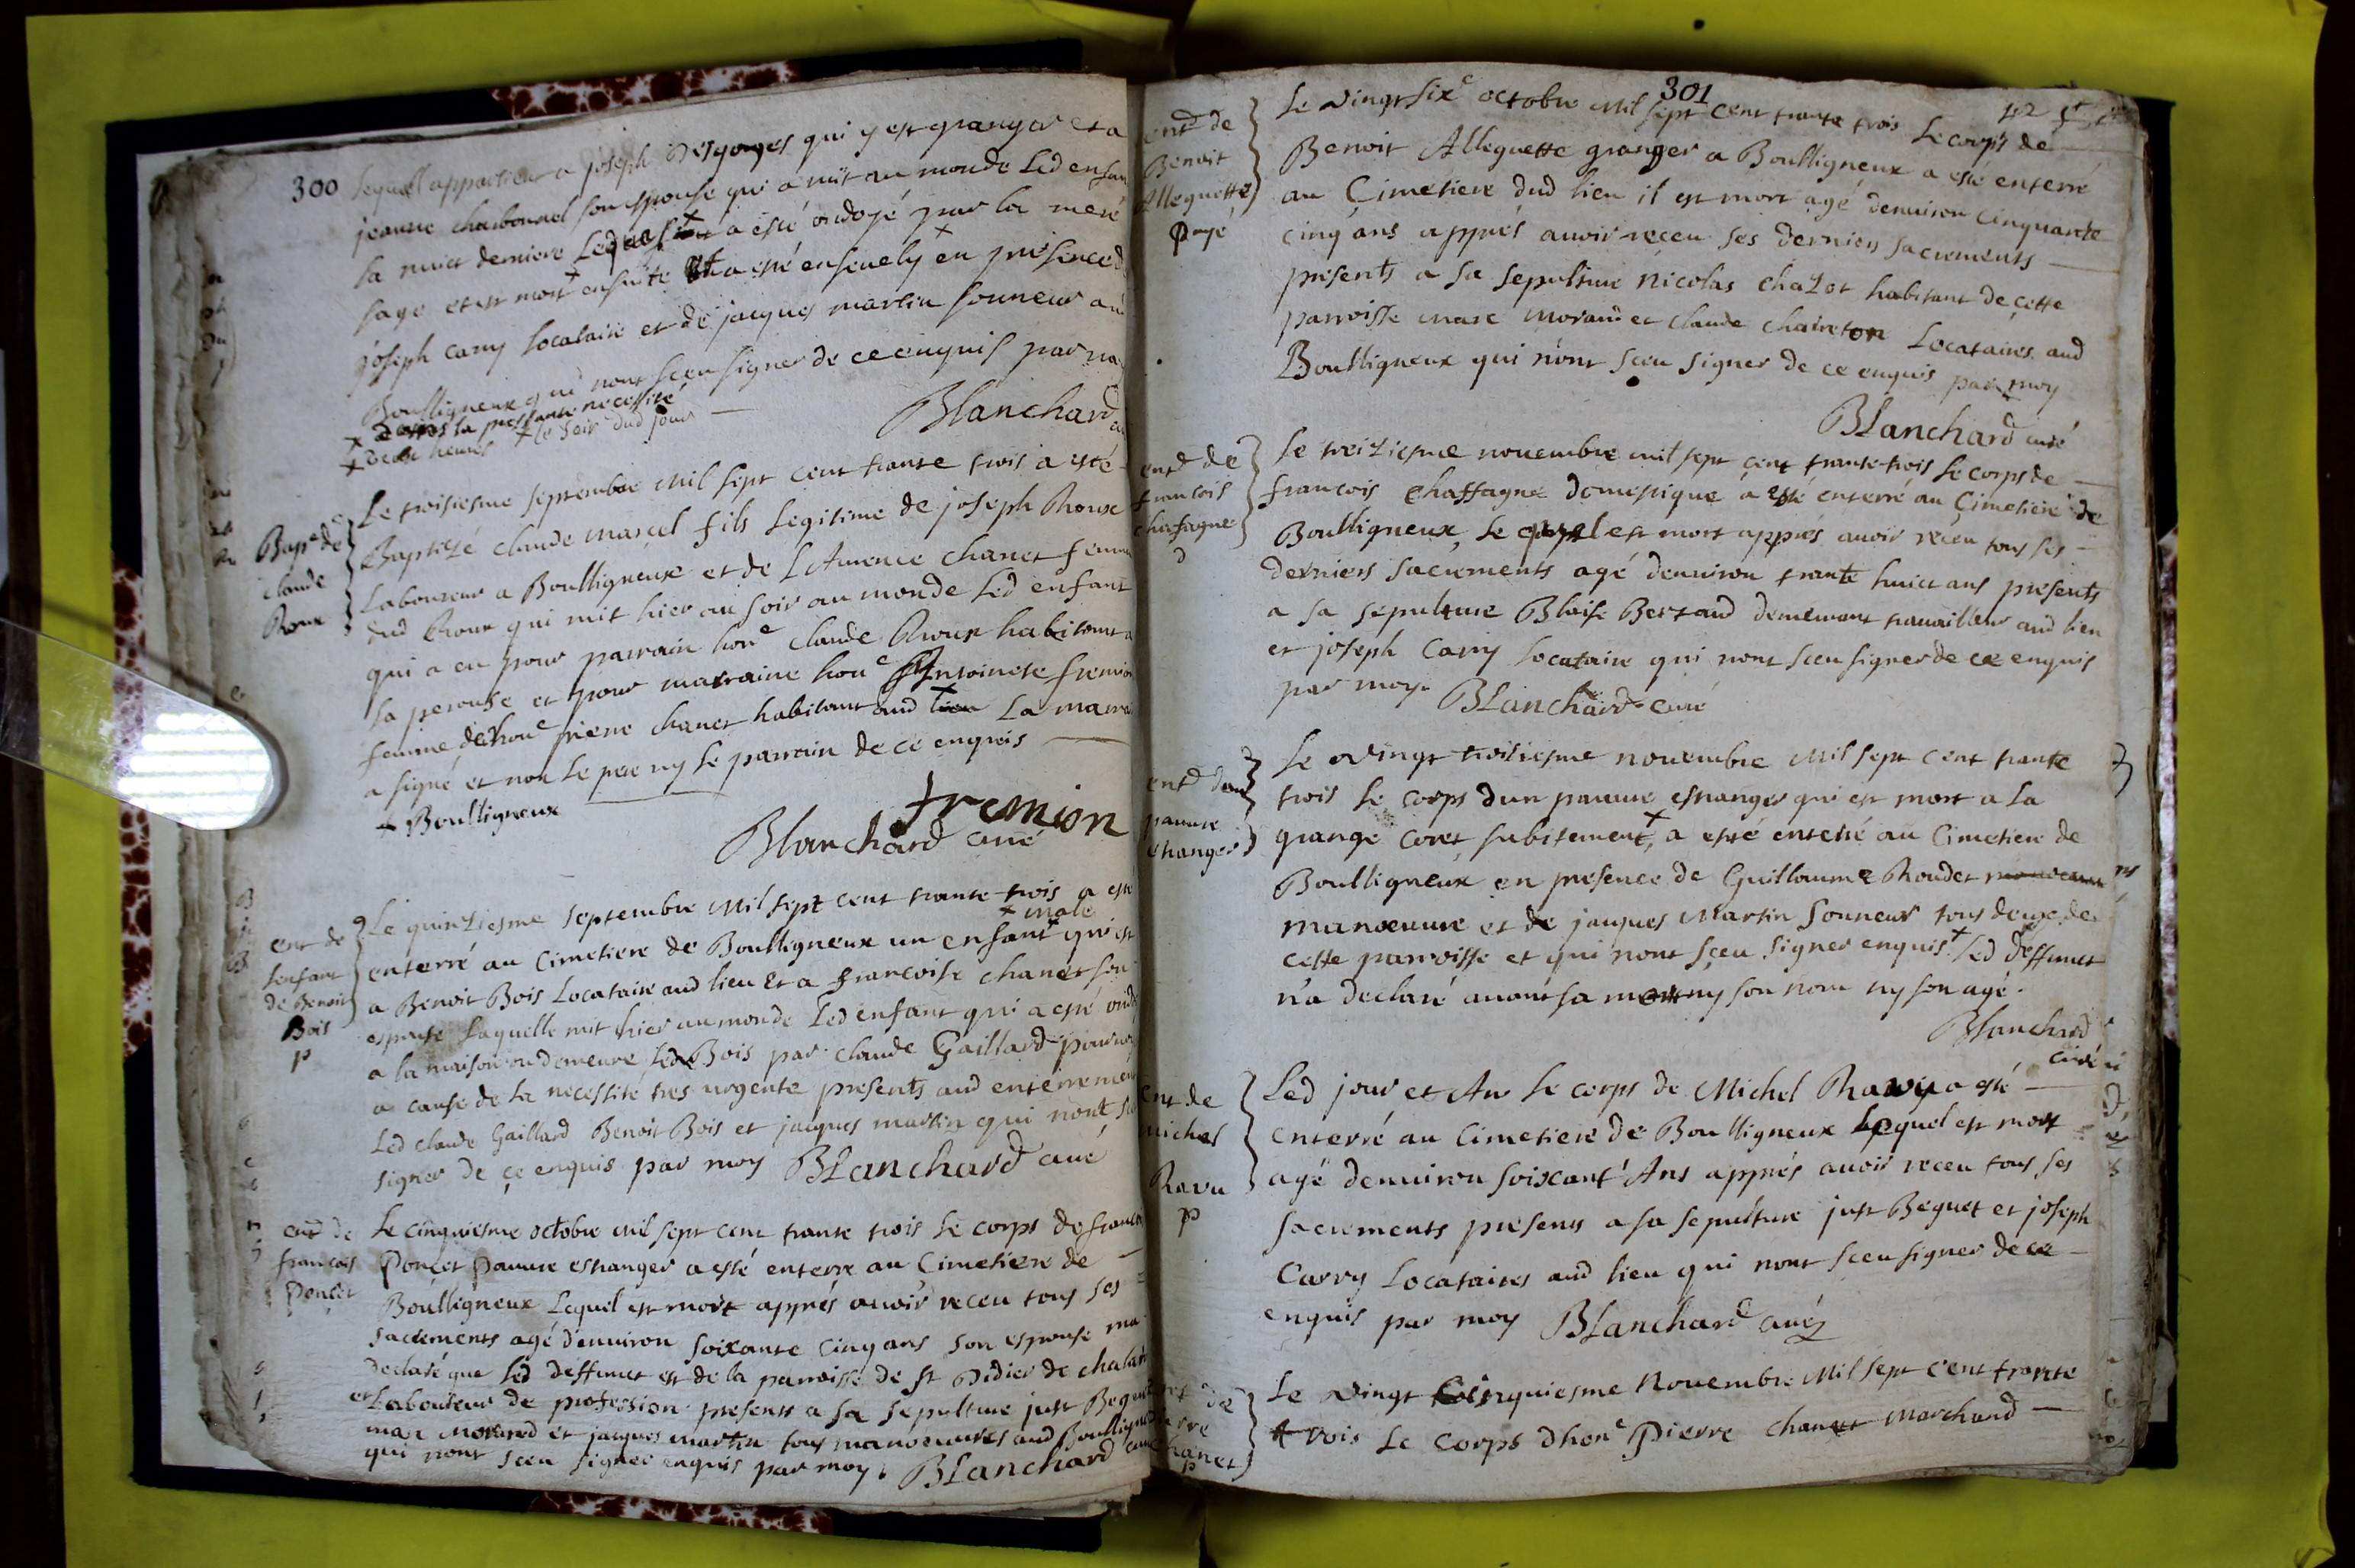 300
lequel appartient a joseph Desgorges qui y est granger et a
jeanne charbonnel son epouse qui a mit au monde Led enfan
la nuict derniere Led a esté ondoyé par la mere
sage et est mort ensuite et a esté enseuely en presence d
joseph carry locataire et de jacques martin sonneur aud
Boulligneux qui nont sceu signer de ce enquis par m
x la pressante necessité
x heures x le soir dud jour
Blanchard
Bap.e de
claude
Roux
Le troisiesme septembre mil sept cent trante trois a esté
Baptizé claude marcel fils Legitime de joseph Roux
Laboureur a Boulligneux et de LAurence chanet femme
dud Roux qui mit hier au soir au monde Led enfant
qui a eu pour parrain hon.e claude Roux habitant a
la perouse et pour marraine hon.e Antoinete fremion
femme de hon.e pierre chanet habitant aud lieu La marra
a signé et non le pere ny le parrain de ce enquis
+ Boulligneux
fremion
Blanchard curé
ent de
lenfant
de Benoit
Bois
p
Le quinziesme septembre mil sept cent trante trois a esté
x male
enterré au Cimetiere de Boulligneux un enfant x qui est
a Benoit Bois Locataire aud lieu et a francoise chanet son
espouse laquelle mit hier au monde Led enfant qui a esté ondo
a la maison ou demeure Led Bois par claude Gaillard pour
a cause de la necessité tres urgente presents aud enterrement
Led claude Gaillard Benoit Bois et jacques martin qui nont sce
signer de ce enquis par moy Blanchard curé
ent de
francois
Poncet
Le cinquiesme octobre mil sept cent trante trois le corps de francoi
Poncet Pauure estranger a esté enterre au Cimetiere de
Boulligneux Lequel est mort appres auoir receu tous ses
sacrements agé d'enuiron soixante cinq ans son espouse ma
declaré que led deffunct est de la parroisse de st Didier de chalar
et Laboureur de profession presents a sa sepulture just Beguet
marc Morand et jacques martin tous manoeuures aud Boulligneu
qui nont sceu signer enquis par moy. Blanchard curé
301
entd de
Benoit
Alleguette
payé
Le vingt six.e octobre mil sept cent trante trois Le corps de
Benoit Alleguette granger a Boulligneux a esté enterré
au Cimetiere dud lieu il est mort agé denuiron cinquante
cinq ans apprés auoir receu ses derniers sacrements
presents a sa sepulture nicolas chazot habitant de cette
parroisse marc morand et claude chaineton Locataires aud
Boulligneux qui n'ont sceu signer de ce enquis par moy
Blanchard curé
entd de
francois
chafagne
Le treiziesme nouembre mil sept cent trante-trois Le corps de
francois chaffagne domestique a esté enterré au Cimetiere de
Boulligneux, Le quel est mort apprés auoir receu tous ses
derniers sacrements agé denuiron trante huict ans presents
a sa sepulture Blaise Bertaud demeurant trauailleur aud lieu
et joseph Carry locataire qui nont sceu signer de ce enquis
par moy. Blanchard curé
entd dun
pauure
etranger
Le vingt troisiesme nouembre mil sept cent trante
trois Le corps dun pauure estranger qui est mort a la
grange Coret subitement x a esté enterré au Cimetiere de
Boulligneux en presence de Guillaume Roudet
manoeuure et de jacques Martin Sonneur tous deux de
cette parroisse et qui nont sceu signer enquis x Led deffunct
n'a declaré auant sa mort ny son nom ny son agé.
Blanchard
curé
ent de
michel
Ravu
p
Led jour et An le corps de Michel Ravy a esté
enterré au Cimetiere de Boulligneux Lequel est mort
agé denuiron soixant' Ans apprés auoir receu tous ses
sacrements presens a sa sepulture just Beguet et joseph
Carry Locataires aud lieu qui nont sceu signer de ce
enquis par moy Blanchard curé
de
chanet
p
Le vingt Cinquiesme Nouembre Mil sept cent trante
trois Le corps dhon.e Pierre chanet Marchand